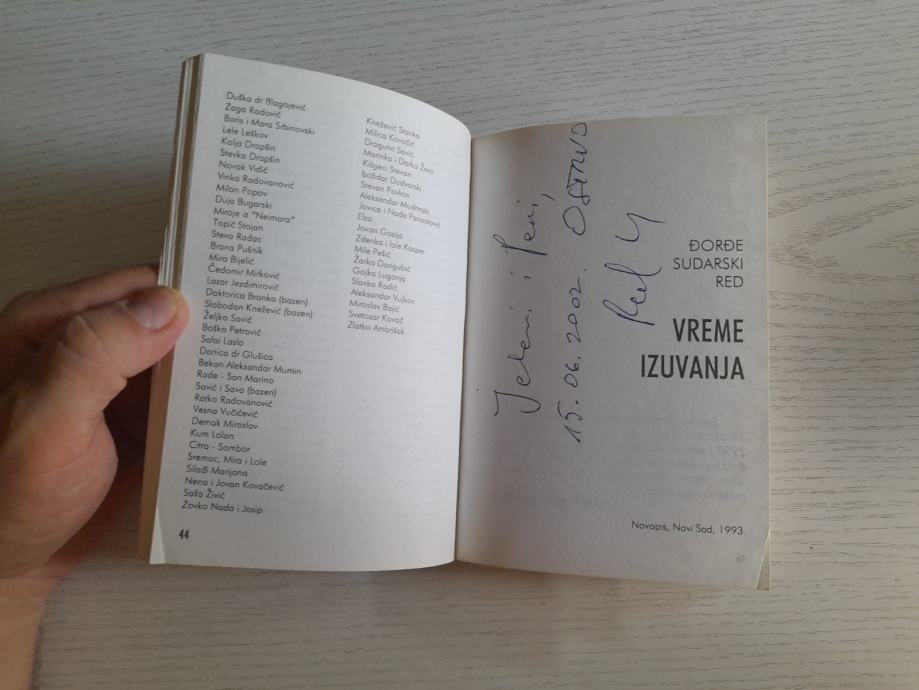 Duška dr Blagojević
Zaga Radović
Boris i Mara Srbinovski
Lele Leškov
Kolja Drapšin
Stevka Drapšin
Novak Vidić
Vinka Radovanović
Milan Popov
Duja Bugarski
Miroje iz "Neimara"
Topić Stojan
Steva Radac
Brana Pušnik
Mira Bijelić
Čedomir Mirković
Lazar Jezdimirović
Doktorica Branka (bazen)
Slobodan Knežević (bazen)
Željko Savić
Boško Petrović
Salai Laslo
Danica dr Glušica
Bekan Aleksandar Mumin
Rade - San Marino
Savić i Sava (bazen)
Ratko Radovanović
Vesna Vučićević
Demak Miroslav
Kum Lolan
Citra - Sombor
Sremac, Mira i Lale
Silađi Marijana
Nena i Jovan Kovačević
Saša Živić
Zovko Nada i Josip
Knežević Stanko
Milica Kovačić
Dragutin Savić
Marinka i Darko Živis
Kišgeci Stevan
božidar Dudvarski
Stevan Pavkov
Aleksandar Mudrinski
Jovica i Nada Panaotović
Elza
Jovan Gazija
Zdenka i lale Kasper
Mile Pešić
Žarko Dangubić
Gojko Luganja
Slavko Radić
Aleksandar Vujkov
Miroslav Bajić
Svetozar Kovač
Zlatko Ambrišak
44
Jeleni i Peri,
15.06.2002.
ĐORĐE
SUDARSKI
RED
VREME
IZUVANJA
Novopis, Novi Sad, 1993.